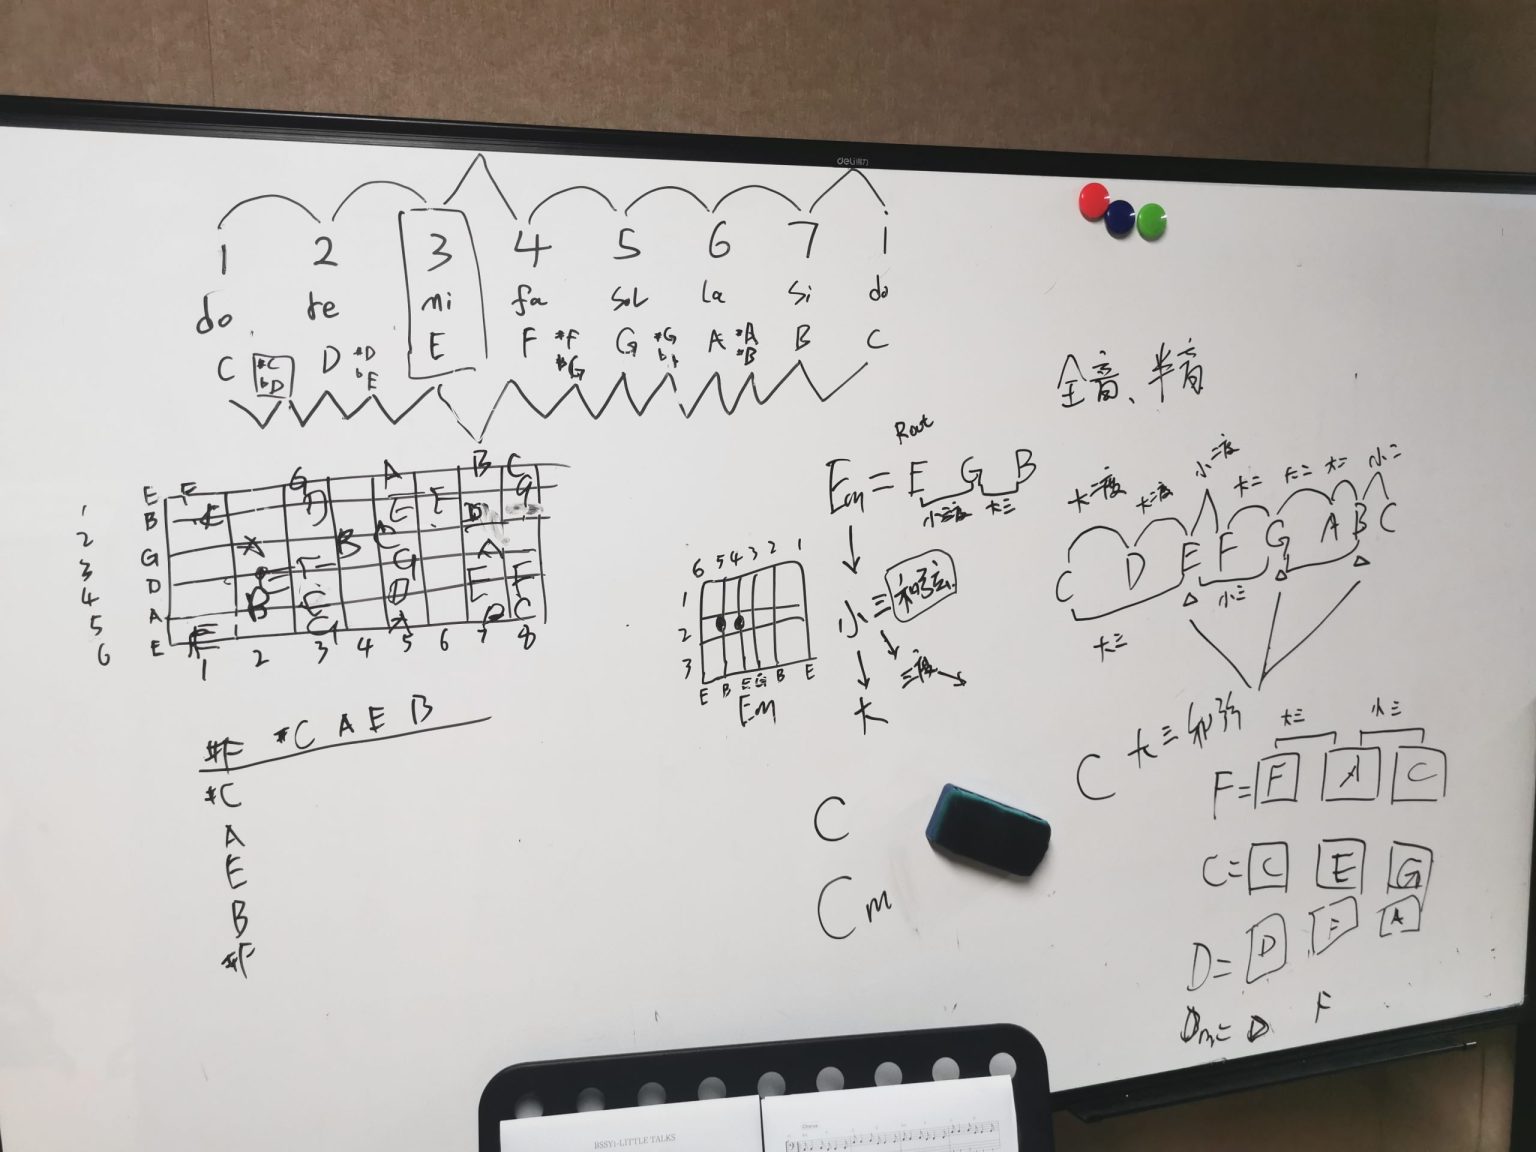 deli得力
1 2 3 4 5 6 7 i
do re mi fa sol la si do
C #C bD D #D bE E F #F G #G A #A #B B C
全音、半音
Root
Em = E G B
小三度 大三
小三和弦
三度
大
大二度 大二度 小二度 大二 大二 大二 小二
C D E F G A B C
大三 小三
C 大三和弦
大三 小三
F= F A C
C= C E G
D= D F A
Dm= D F
E B G D A E
1 2 3 4 5 6
1 2 3 4 5 6 7 8
6 5 4 3 2 1
1
2
3
E B E G B E
Em
#F #C A E B
#C
A
E
B
#F
C
Cm
BSSY1-LITTLE TALKS
Chorus